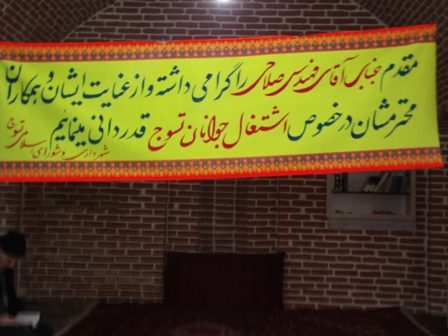 مقدم جناب آقای مهندس صلاحی را گرامی داشته و از عنایت ایشان و همکاران
محترمشان در خصوص اشتغال جوانان تسوج قدردانی مینمایم
شهرداری و شورای اسلامی تسوج